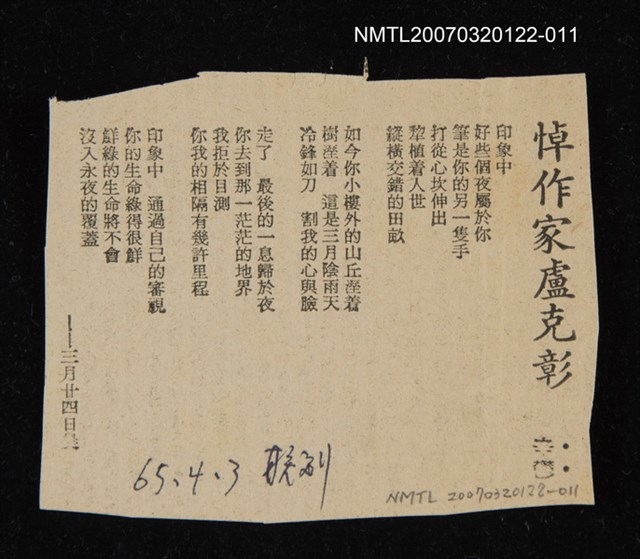 NMTL20070320122-011
悼作家盧克彰
印象中
好些個夜屬於你
筆是你的另一隻手
打從心坎伸出
犂植着人世
縱橫交錯的田畝
如今你小樓外的山丘溼着
樹溼着 這是三月陰雨天
冷鋒如刀 割我的心與臉
走了 最後的一息歸於夜
你去到那一茫茫的地界
我拒於目測
你我的相隔有幾許里程
印象中 通過自己的審視
你的生命綠得很鮮
鮮綠的生命將不會
沒入永夜的覆蓋
——三月廿四日
65.4.3
NMTL 20070320122-011